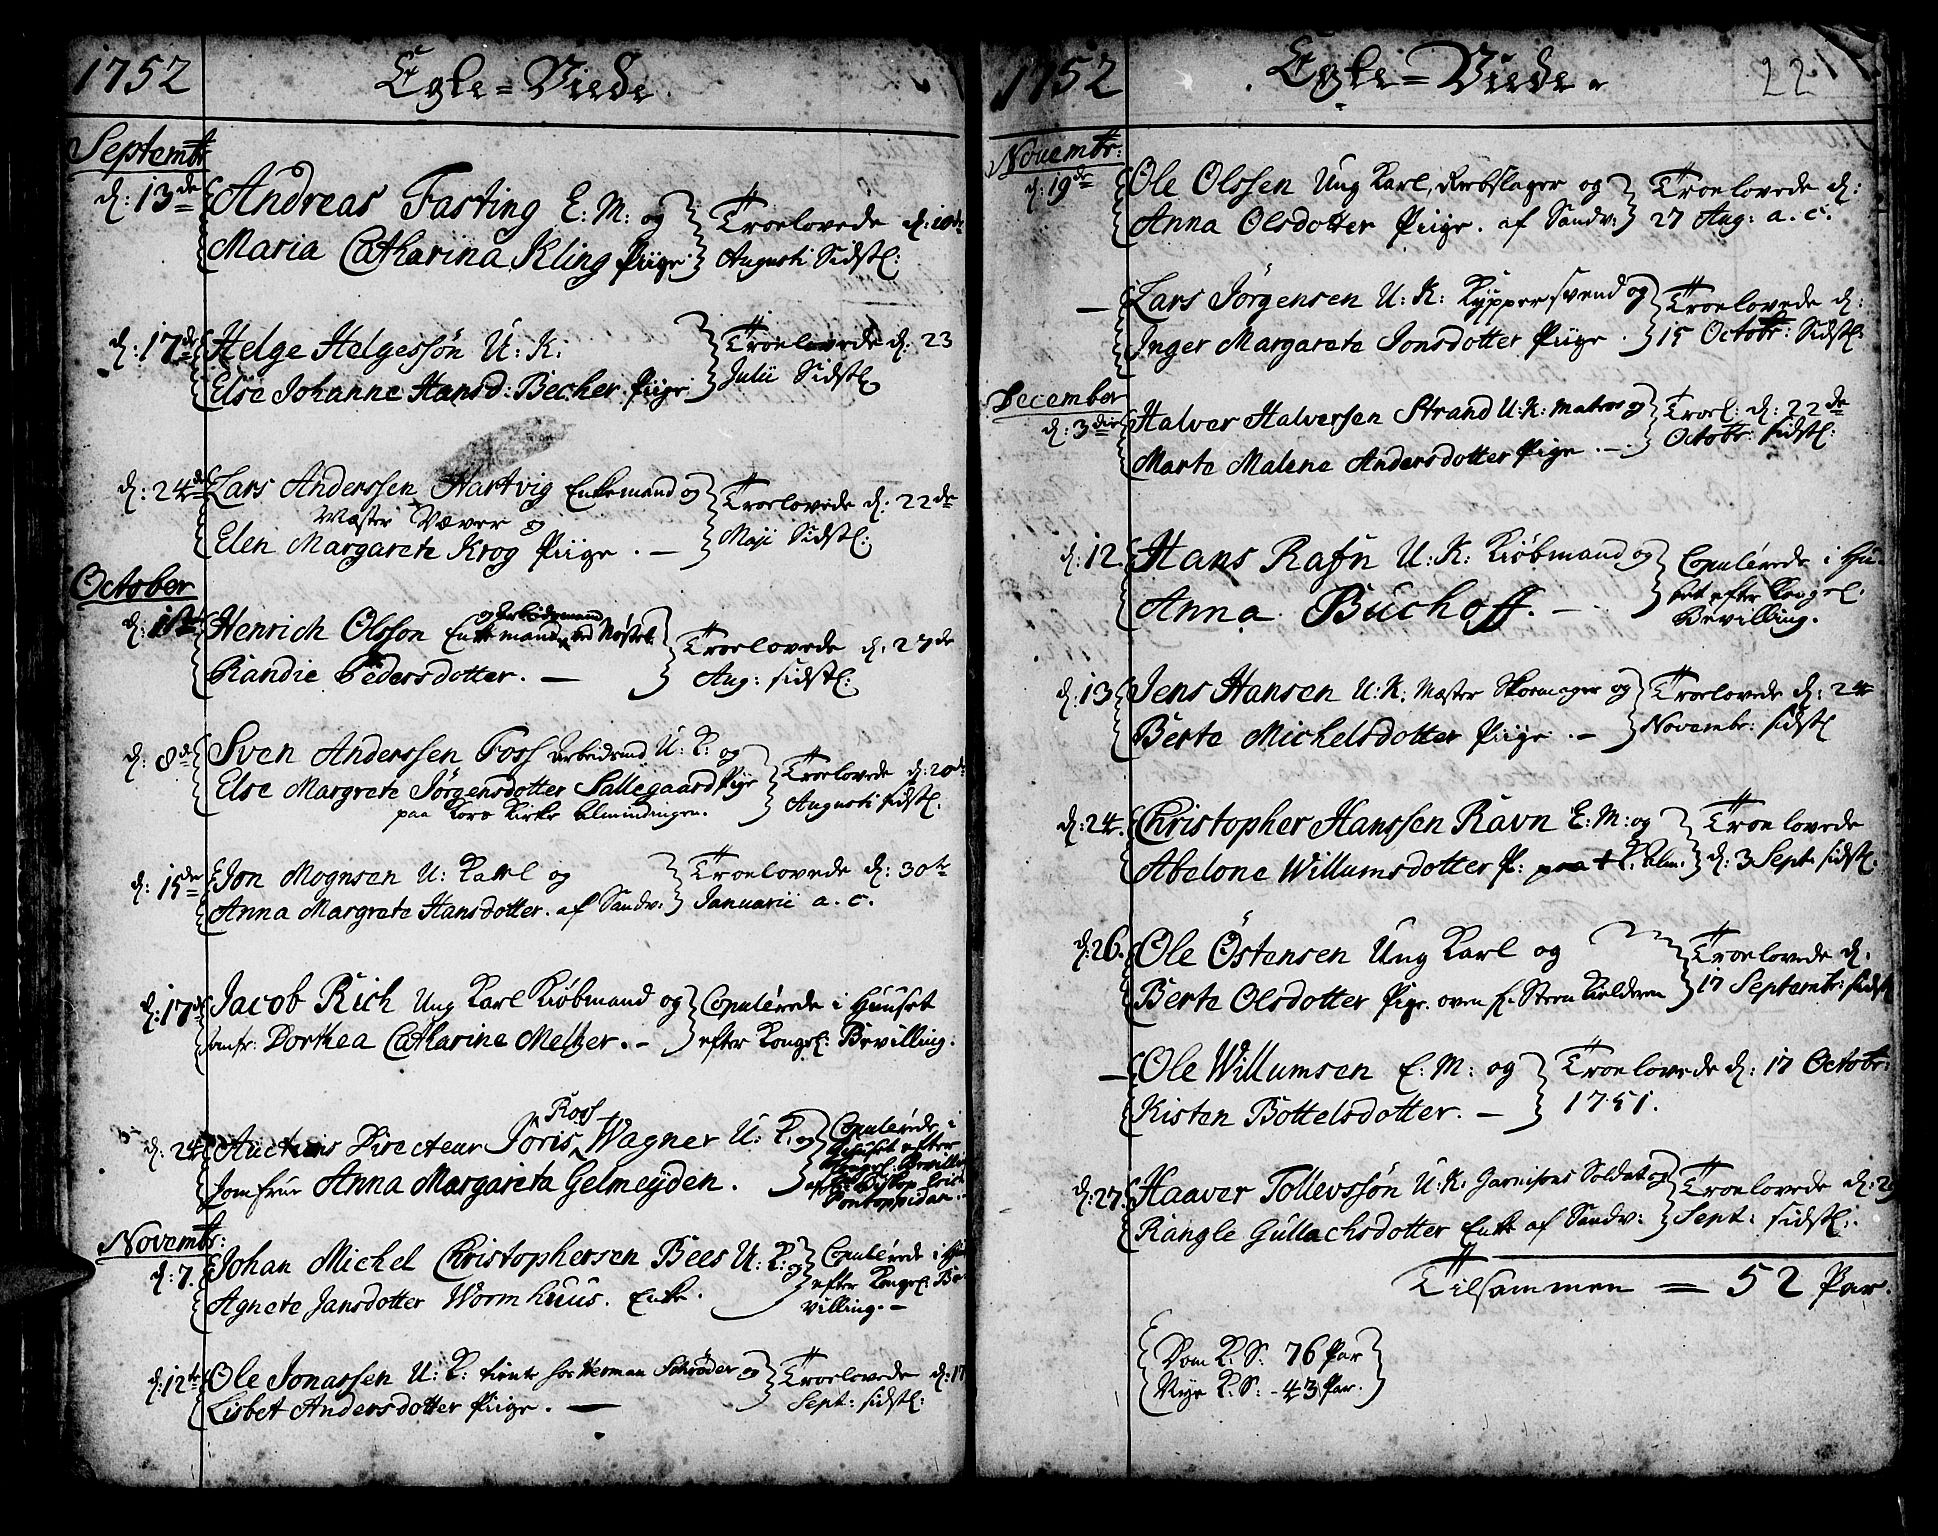 1752 Egte=Viede.
Septembr:
d: 13de Andreas Fasting E: M: og
Maria Catharina Kling Piige
Troelovede d: 10de
Augusti Sidstl:
d: 17de Helge Helgessøn U: K:
Else Johanne Hansd: Becher Piige
Troelovede d: 23
Julii Sidstl
d: 24de Lars Anderssen Hartvig Enkemand og
Mæster Væver og
Elen Margarete Krog Piige. —
Troelovede d: 22de
Maji Sidstl:
October
d: Henrich Olsson Enkemand ved Nøstet
og Arbeidsmand
Randie Pedersdotter. —
Troelovede d: 27de
Aug: sidstl:
d: 8de Sven Anderssen Foss Arbeidsmd U: K: og
Else Margrete Jørgensdotter Sallegaard Pige
paa Kors Kirke Almindingen.
Troelovede d: 20de
Augusti sidstl:
d: 15de Jon Mognsen U: Karl og
Anna Margrete Hansdotter. af Sandv:
Troelovede d: 30te
Januarii a. c.
d: 17de Jacob Rich Ung Karl Kiøbmand og
Jomfr: Dorthea Catharine Meltzer. —
Copulerede i Huuset
efter Kongel: Bevilling.
d: 24 Auctions Directeur Joris Ross Wagner U: K: og
Jomfrue Anna Margareta Gelmeyden.
Copulerede i
Huuset efter
Kongel: Bevilling
af Hr. Biskop Erich
Pontoppidan.
Novembr:
d: 7. Johan Michel Christophersen Bees U: K: og
Agnete Jansdotter Wormhuus. Enke.
Copulerede i Huuset
efter Kongel: Be-
villing. —
d: 12te Ole Jonassen U: K: tiente hos Herman Schrøder og
Lisbet Andersdotter Piige. —
Troelovede d: 17
Sept: sidstl:
1752 Egte=Viede. 221
Novembr:
d: 19de Ole Olssen Ung Karl, Rebslager og
Anna Olsdotter Piige. af Sandv:
Troelovede d:
27 Aug: a. c.
— Lars Jörgensen U: K: Kypper svend og
Inger Margarete Jonsdotter Piige.
Troelovede d:
15 Octobr: Sidstl:
December
d: 3die Halver Halversen Strand U: K: Matros og
Marte Malene Andersdotter Pige. —
Troel: d: 22de
Octobr: sidstl:
d: 12. Hans Rafn U: K: Kiøbmand og
Anna Buchoff. —
Copulerede i Hu-
set efter Kongel.
Bevilling.
d: 13 Jens Hansen U: K: Mæster Skomager og
Berte Michelsdotter Piige. —
Troelovede d: 24
Novembr: sidstl
d: 24. Christopher Hanssen Ravn E: M: og
Abelone Willumsdotter P: paa + K. Alm.
Troelovede
d: 3 Sept: sidstl:
d: 26. Ole Östensen Ung Karl og
Berte Olsdotter Pige. oven f. Steen Kielderen
Troelovede d:
17 Septembr: sidstl
— Ole Willumsen E: M: og
Kisten Bottelsdotter. —
Troelovede d: 17 Octobr:
1751.
d: 27. Haaver Tollevssøn U: K: Garnisons Soldat og
Rangle Gullachsdotter Enke af Sandv:
Troelovede d: 29
Sept: sidstl:
Tilsammen = 52 Par.
Dom K. S: 76 Par
Nye K. S: - 43 Par.